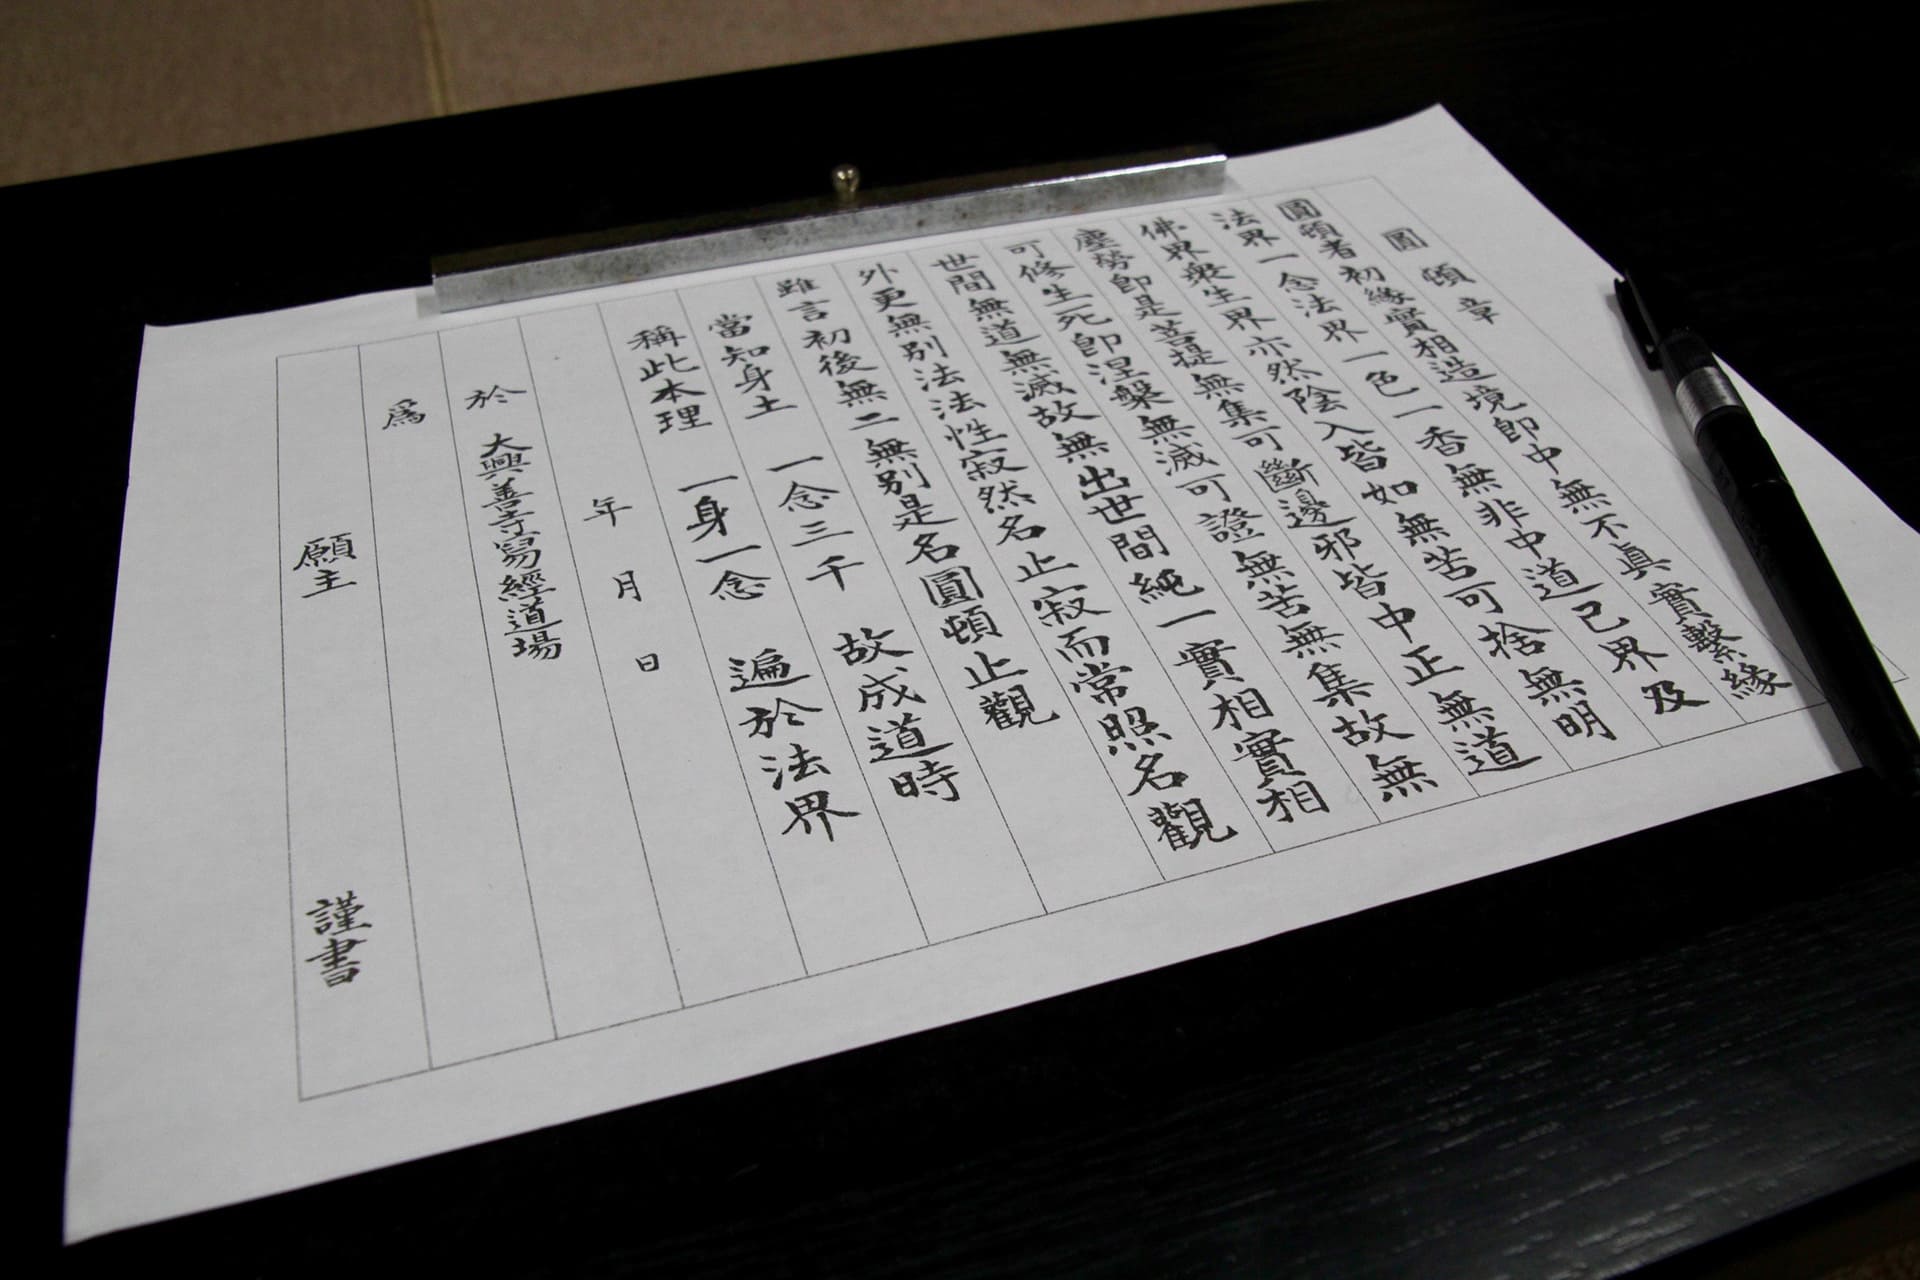 圓頓章
圓頓者初緣實相造境即中無不真實繫緣
法界一念法界一色一香無非中道己界及
佛界衆生界亦然陰入皆如無苦可捨無明
塵勞即是菩提無集可斷邊邪皆中正無道
可修生死即涅槃無滅可證無苦無集故無
世間無道無滅故無出世間純一實相實相
外更無別法法性寂然名止寂而常照名觀
雖言初後無二無別是名圓頓止觀
當知身土 一念三千 故成道時
稱此本理 一身一念 遍於法界
年 月 日
於 大興善寺寫經道場
爲
願主 謹書